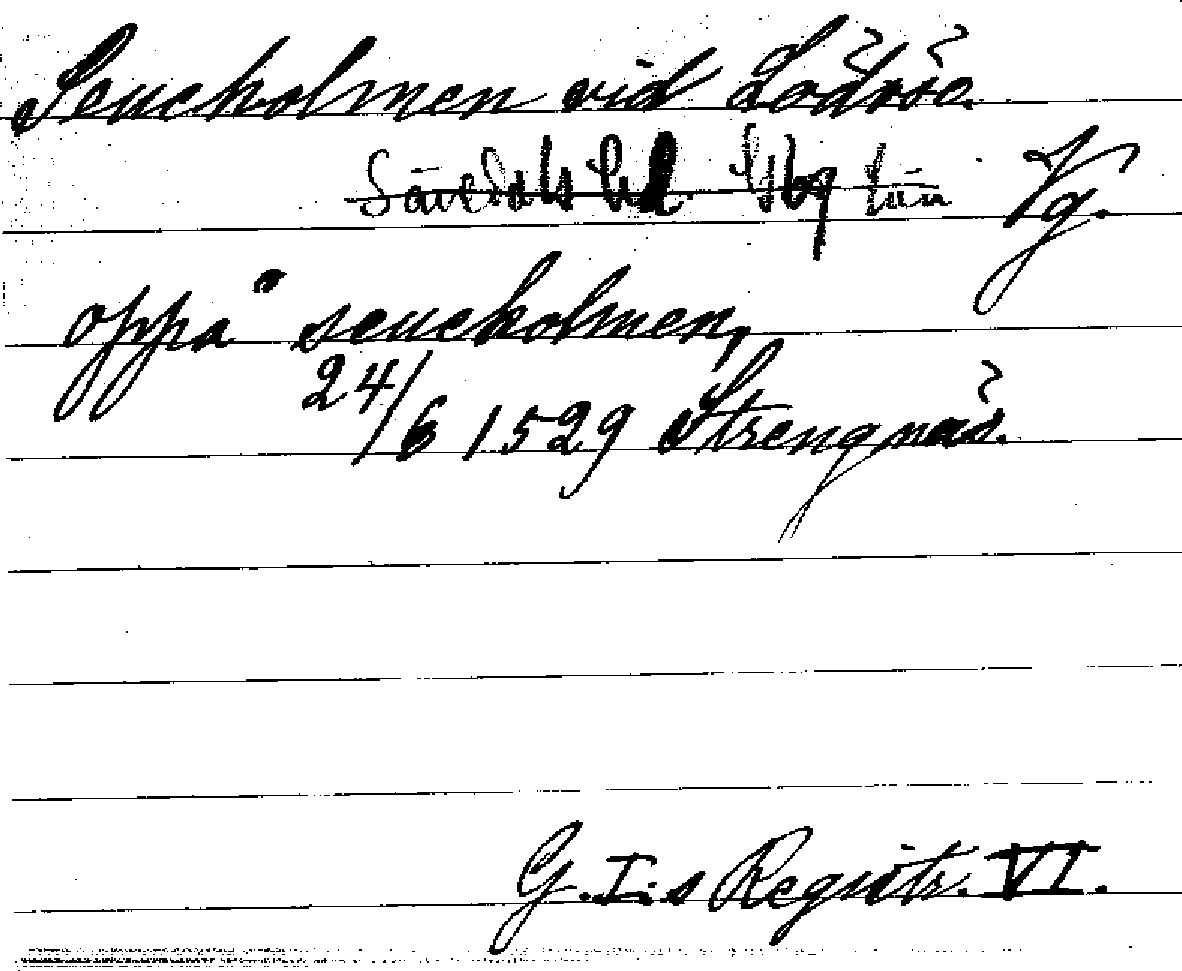 Seucholmen vid Lödöse.
Sävedals hd. Gbg län Vg.
oppå seucholmen,
24/6 1529 Strengnäs.
G. I:s Registr. VI.